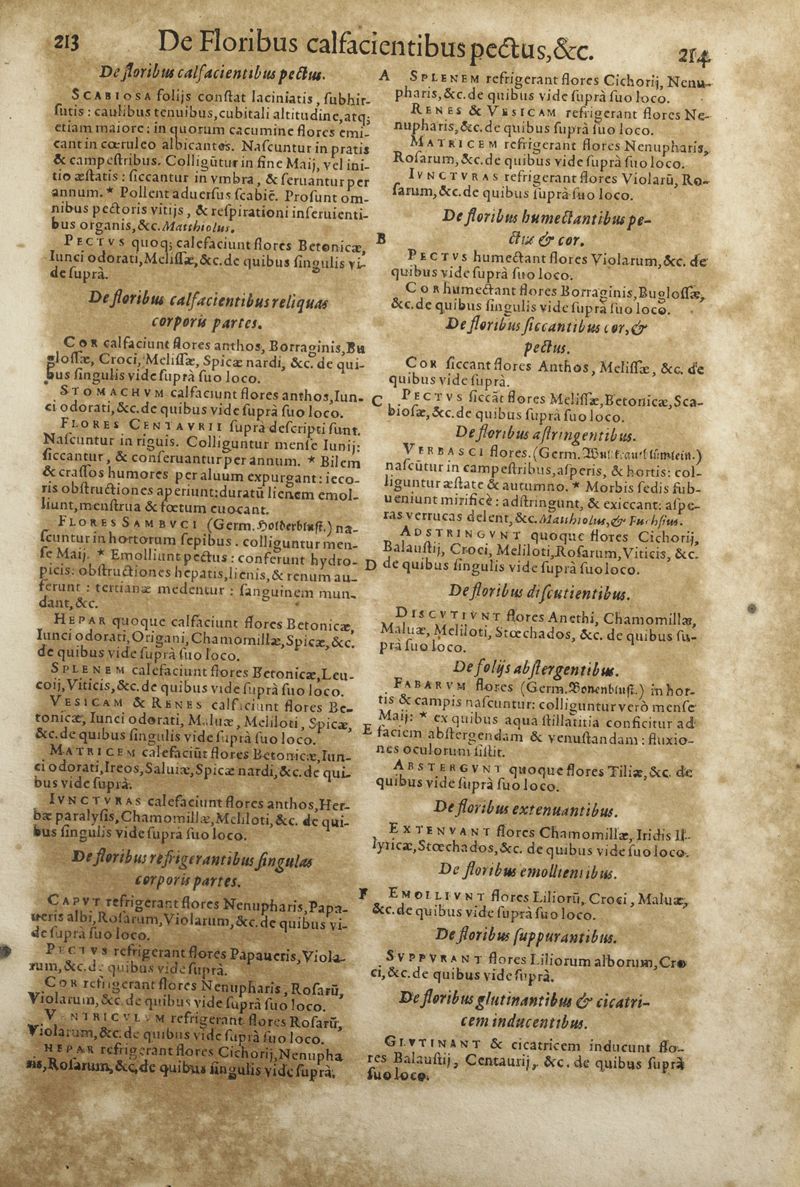 213 De Floribus calfacientibus pectus,&c. 214
De floribus calfacientibus pectus.
SCABIOSA folijs constat laciniatis, subhir-
sutis: caulibus tenuibus, cubitali altitudine, atq;
etiam maiore: in quorum cacumine flores emi-
cant in cœruleo albicantes. Nascuntur in pratis
& campestribus. Colligūtur in fine Maij, vel ini-
tio æstatis: siccantur in vmbra, & seruantur per
annum. * Pollent aduersus scabiē. Prosunt om-
nibus pectoris vitijs, & respirationi inseruienti-
bus organis, &c. Matthiolus.
PECTVS quoq; calefaciunt flores Betonicæ,
Iunci odorati, Melissæ, &c. de quibus singulis vi-
de suprà.
De floribus calfacientibus reliquas
corporis partes.
COR calfaciunt flores anthos, Borraginis, Bu
glossæ, Croci, Melissæ, Spicæ nardi, &c. de qui-
bus singulis vide suprà suo loco.
STOMACHVM calfaciunt flores anthos, Iun-
ci odorati, &c. de quibus vide suprà suo loco.
FLORES CENTAVRII suprà descripti sunt.
Nascuntur in riguis. Colliguntur mense Iunij:
siccantur, & conseruantur per annum. * Bilem
& crassos humores per aluum expurgant: ieco-
ris obstructiones aperiunt: duratū lienem emol-
liunt, menstrua & fœtum euocant.
FLORES SAMBVCI (Germ. Holderblüst.) na-
scuntur in hortorum sepibus. colliguntur men-
se Maij. * Emolliunt pectus: conferunt hydro-
picis: obstructiones hepatis, lienis, & renum au-
ferunt: tertianæ medentur: sanguinem mun-
dant, &c.
HEPAR quoque calfaciunt flores Betonicæ,
Iunci odorati, Origani, Chamomillæ, Spicæ, &c.
de quibus vide suprà suo loco.
SPLENEM calefaciunt flores Betonicæ, Leu-
coij, Viticis, &c. de quibus vide suprà suo loco.
VESICAM & RENES calfaciunt flores Be-
tonicæ, Iunci odorati, Maluæ, Meliloti, Spicæ,
&c. de quibus singulis vide suprà suo loco.
MATRICEM calefaciūt flores Betonicæ, Iun-
ci odorati, Ireos, Saluiæ, Spicæ nardi, &c. de qui-
bus vide suprà.
IVNCTVRAS calefaciunt flores anthos, Her-
bæ paralysis, Chamomillæ, Meliloti, &c. de qui-
bus singulis vide suprà suo loco.
De floribus refrigerantibus singulas
corporis partes.
CAPVT refrigerant flores Nenupharis, Papa-
ueris albi, Rosarum, Violarum, &c. de quibus vi-
de suprà suo loco.
PECTVS refrigerant flores Papaueris, Viola-
rum, &c. de quibus vide suprà.
COR refrigerant flores Nenupharis, Rosarū,
Violarum, &c. de quibus vide suprà suo loco.
VENTRICVLVM refrigerant flores Rosarū,
Violarum, &c. de quibus vide suprà suo loco.
HEPAR refrigerant flores Cichorij, Nenupha
ris, Rosarum, &c. de quibus singulis vide suprà.
A SPLENEM refrigerant flores Cichorij, Nenu-
pharis, &c. de quibus vide suprà suo loco.
RENES & VESICAM refrigerant flores Ne-
nupharis, &c. de quibus suprà suo loco.
MATRICEM refrigerant flores Nenupharis,
Rosarum, &c. de quibus vide suprà suo loco.
IVNCTVRAS refrigerant flores Violarū, Ro-
sarum, &c. de quibus suprà suo loco.
De floribus humectantibus pe-
B ctus & cor.
PECTVS humectant flores Violarum, &c. de
quibus vide suprà suo loco.
COR humectant flores Borraginis, Buglossæ,
&c. de quibus singulis vide suprà suo loco.
De floribus siccantibus cor, &
pectus.
COR siccant flores Anthos, Melissæ, &c. de
quibus vide suprà.
C PECTVS siccāt flores Melissæ, Betonicæ, Sca-
biosæ, &c. de quibus suprà suo loco.
De floribus astringentibus.
VERBASCI flores. (Germ.
nascūtur in campestribus, asperis, & hortis: col-
liguntur æstate & autumno. * Morbis sedis sub-
ueniunt mirificè: adstringunt, & exiccant: aspe-
ras verrucas delent, &c. Matthiolus, & Fuchsius.
ADSTRINGVNT quoque flores Cichorij,
Balaustij, Croci, Meliloti, Rosarum, Viticis, &c.
D de quibus singulis vide suprà suo loco.
De floribus discutientibus.
DISCVTIVNT flores Anethi, Chamomillæ,
Maluæ, Meliloti, Stœchados, &c. de quibus su-
prà suo loco.
De folijs abstergentibus.
FABARVM flores (Germ. Bonenblust.) in hor-
tis & campis nascuntur: colliguntur verò mense
Maij: * ex quibus aqua stillatitia conficitur ad
E faciem abstergendam & venustandam: fluxio-
nes oculorum sistit.
ABSTERGVNT quoque flores Tiliæ, &c. de
quibus vide suprà suo loco.
De floribus extenuantibus.
EXTENVANT flores Chamomillæ, Iridis Il-
lyricæ, Stœchados, &c. de quibus vide suo loco.
De floribus emollientibus.
F EMOLLIVNT flores Liliorū, Croci, Maluæ,
&c. de quibus vide suprà suo loco.
De floribus suppurantibus.
SVPPVRANT flores Liliorum alborum, Cro
ci, &c. de quibus vide suprà.
De floribus glutinantibus & cicatri-
cem inducentibus.
GLVTINANT & cicatricem inducunt flo-
res Balaustij, Centaurij, &c. de quibus suprà
suo loco.